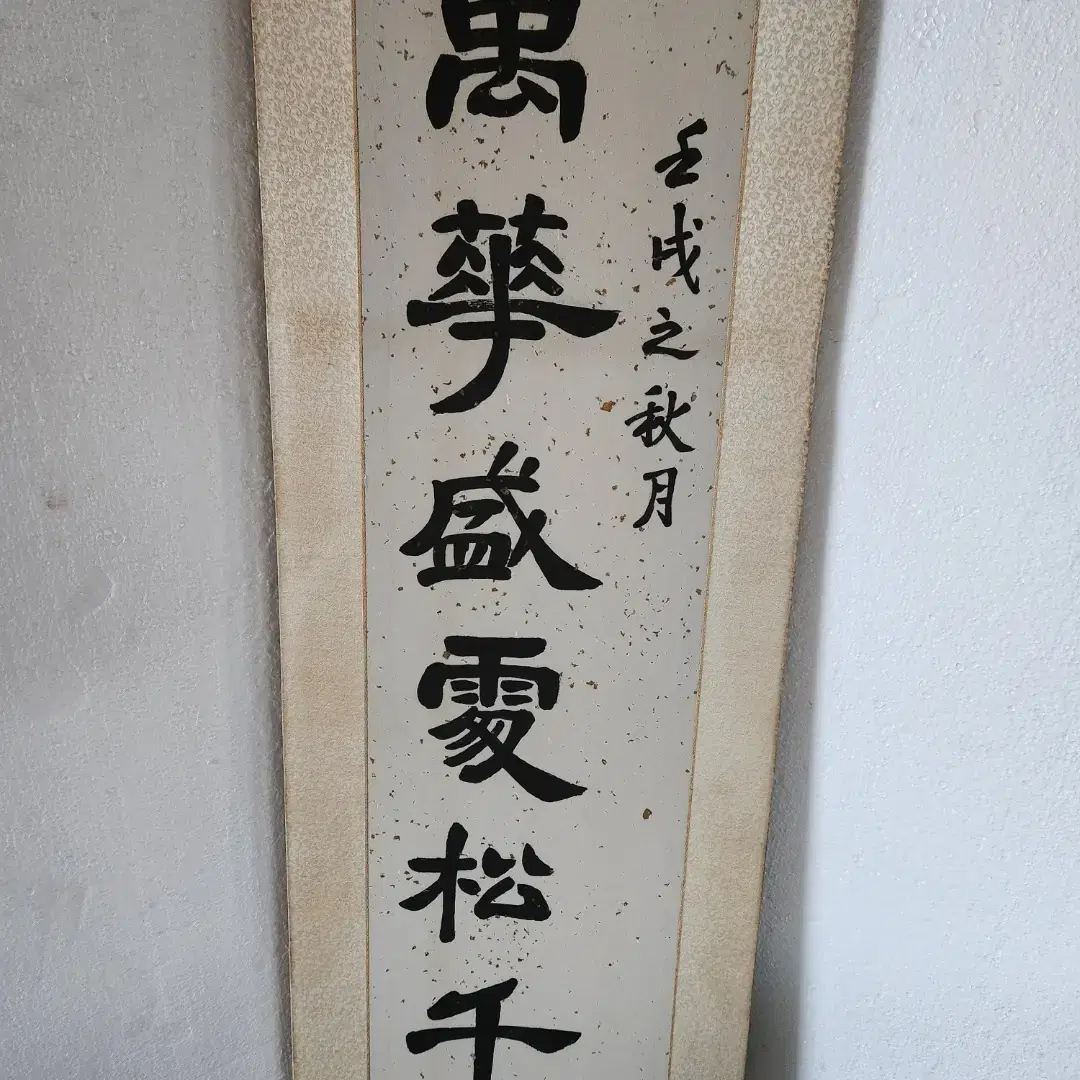 壬戌之秋月
萬華盛處松千